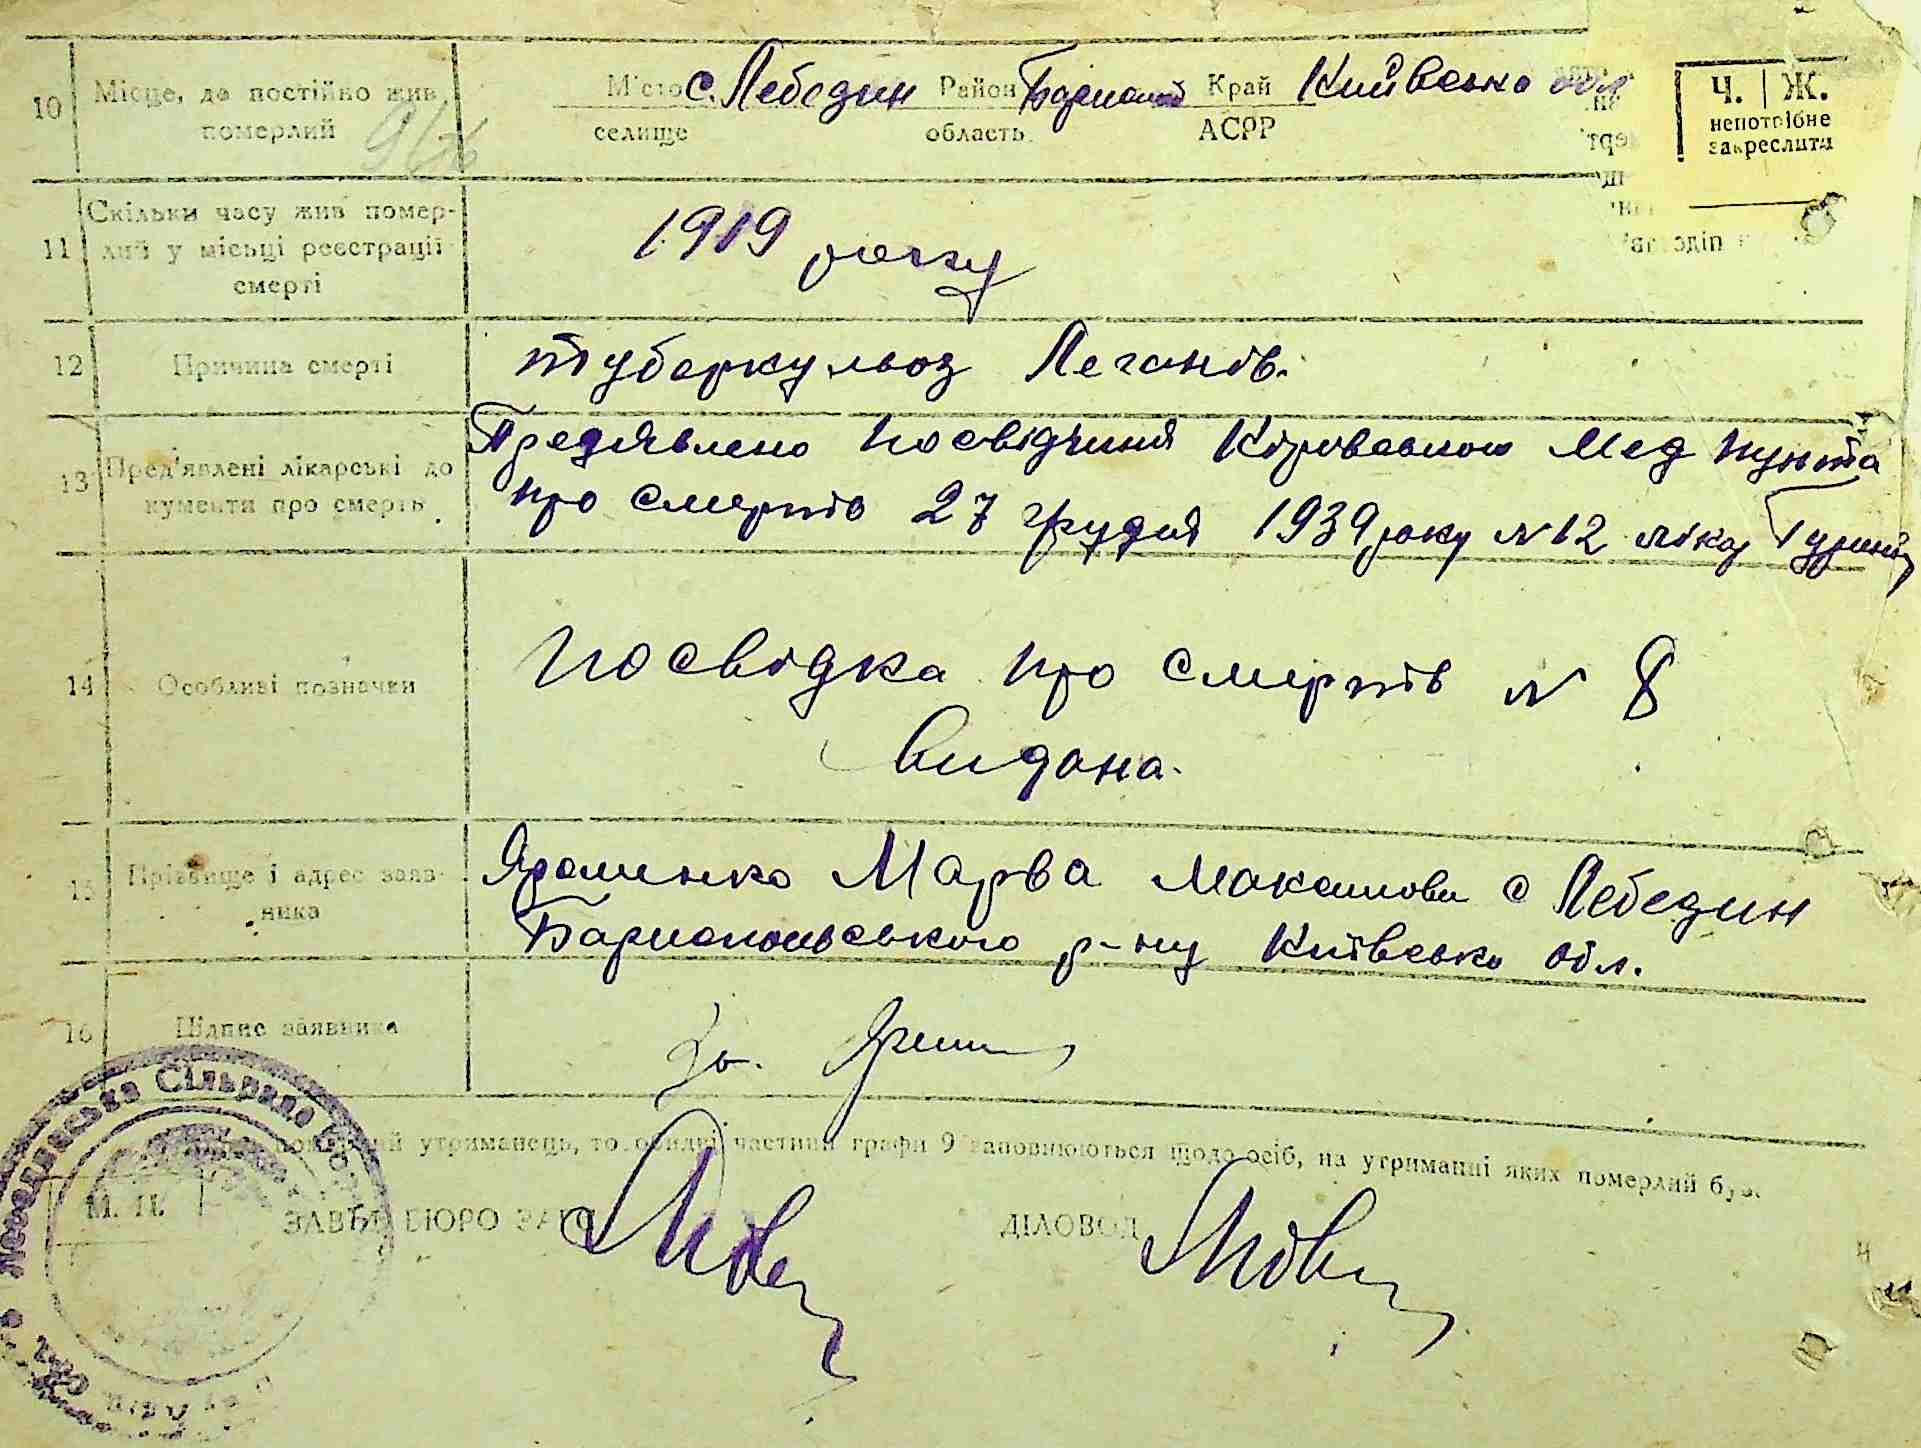 10 Місце, де постійно жив померлий
Місто с. Лебедин Район Край Київсько обл
селище область АСРР
Ч. | Ж.
непотрібне
закреслити
11 Скільки часу жив помер-
лий у місьці реєстрації
смерті
1919 року
12 Причина смерті
туберкульоз Легенів.
13 Пред'явлені лікарські до
кументи про смерть.
Предявлено посвідчиння Мед пункта
про смерть 27 грудня 1939 року N 12 лікар
14 Особливі позначки
Посвідка про смерть N 8
видана.
15 Прізвище і адрес заяв-
ника
Яременко Марва Макаимовн с Лебедин
Бариспольського р-ну Київсько обл.
16 Підпис заявника
За.
утриманець, то обидві частини графи 9 заповнюються щодо осіб, на утриманні яких померлий був.
М. П.
ЗАВІД БЮРО ЗАГС
ДІЛОВОД
Сільрада